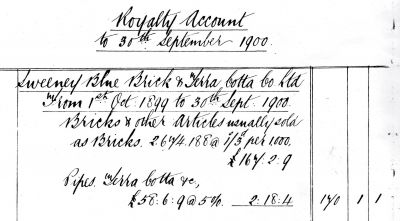 Royalty Account
to 30th September 1900.
Sweeney Blue Brick & Terra Cotta Co Ltd
From 1st Oct. 1899 to 30th Sept. 1900.
Bricks & other Articles usually sold
as Bricks. 2674188 @ 1/3d per 1000.
£167.2.9
Pipes. Terra Cotta &c,
£58:6:9 @ 5%. 2:18:4 170 1 1